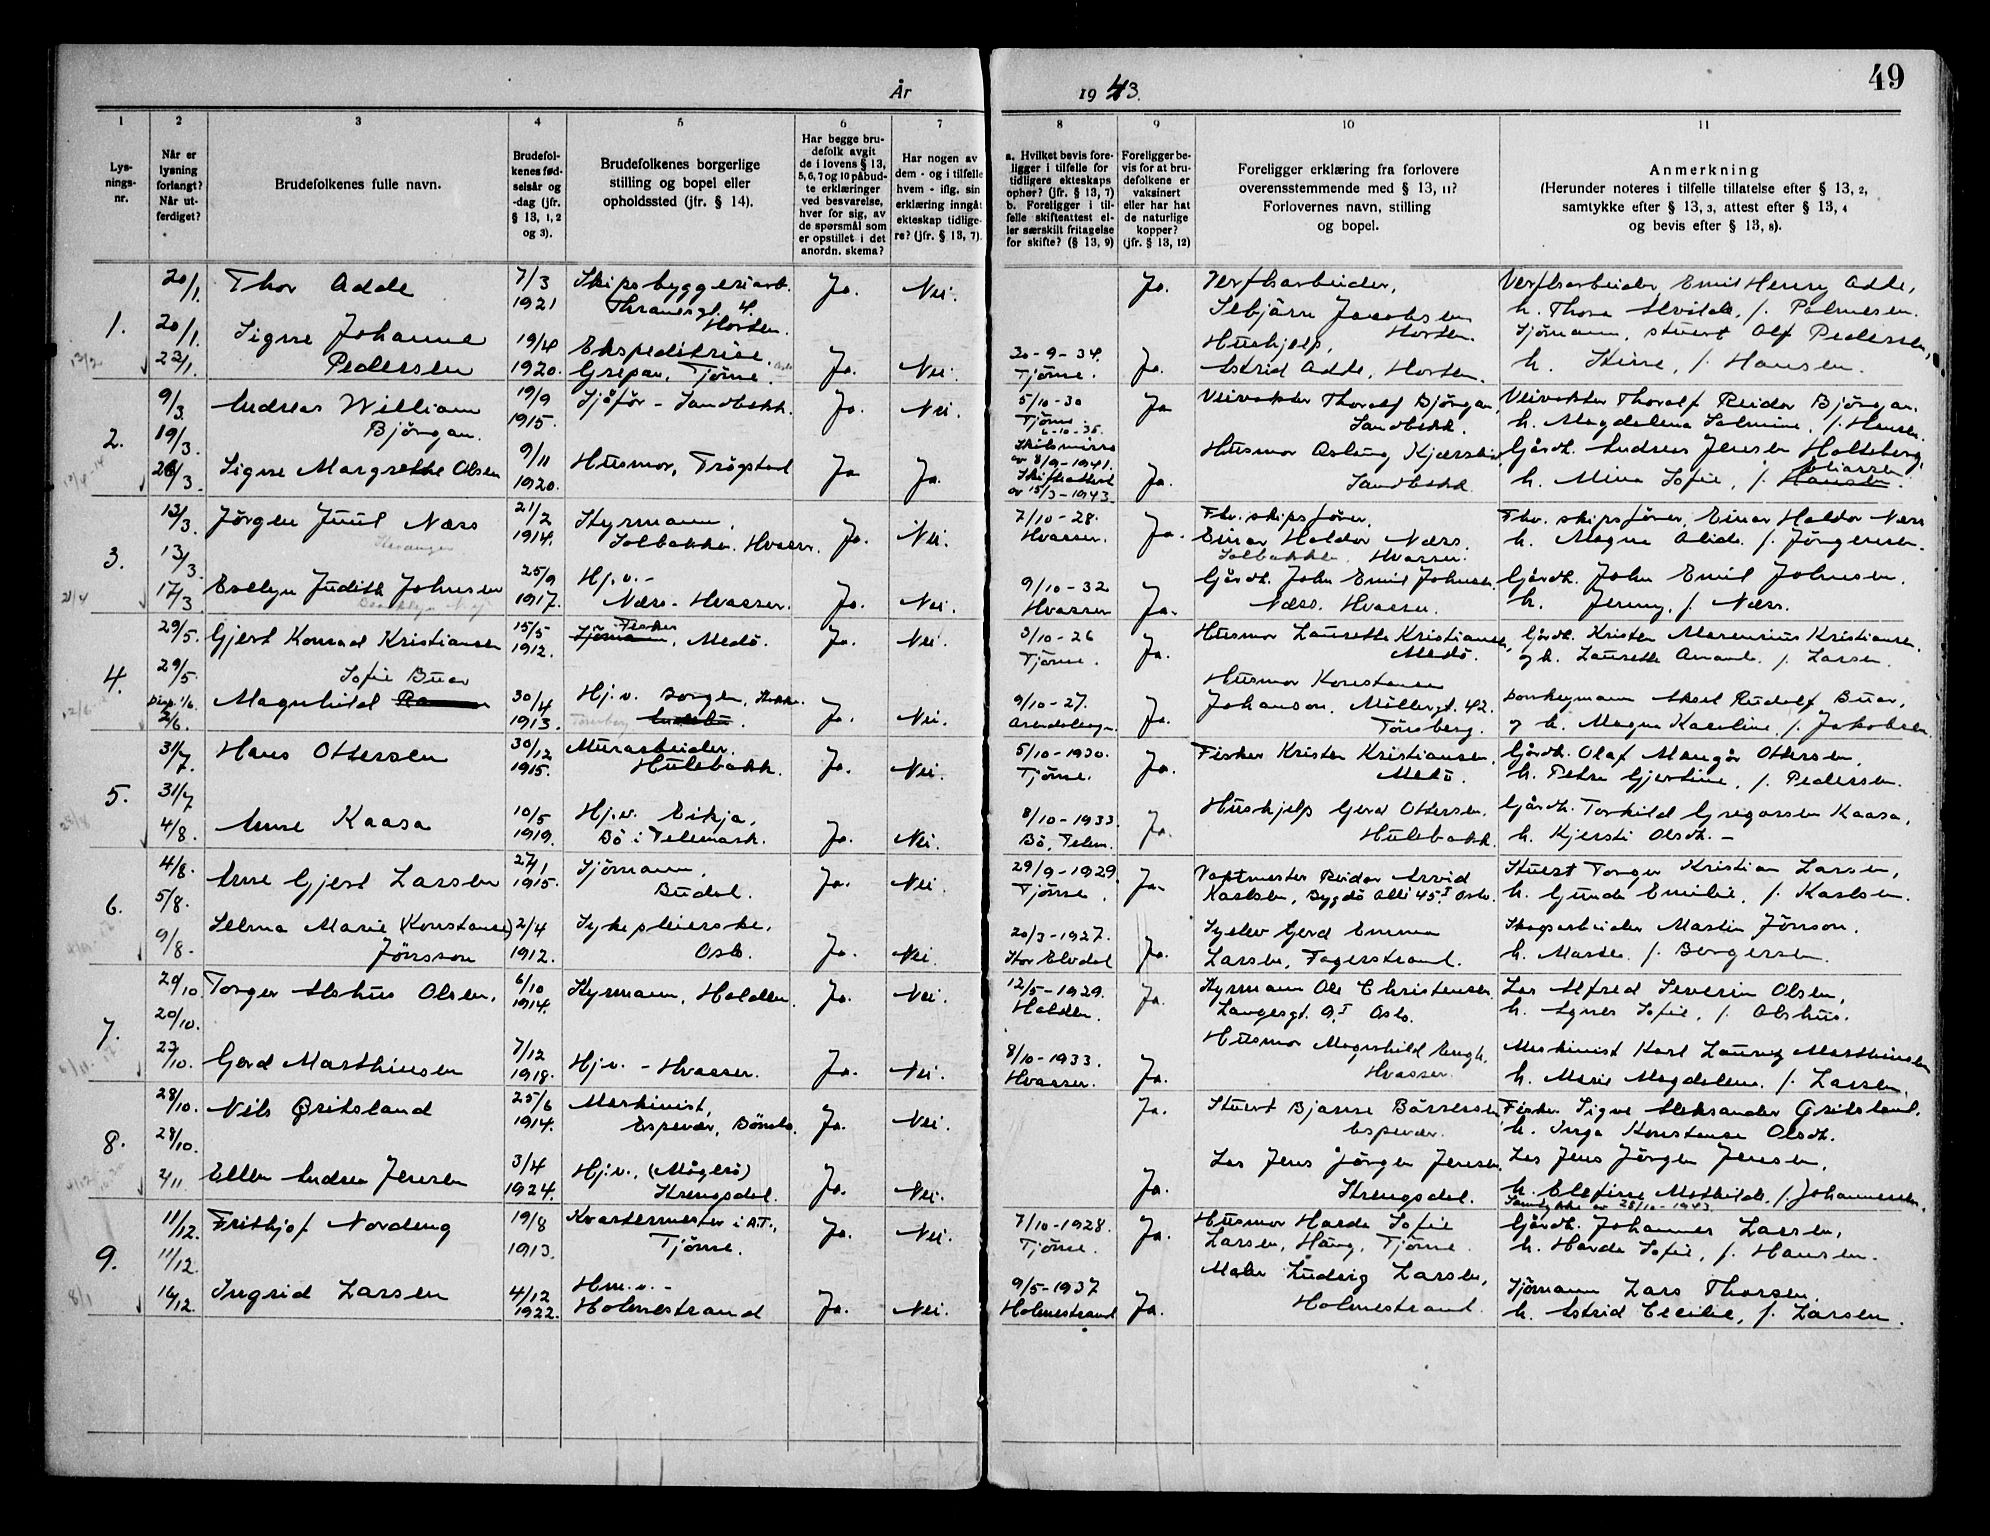 År
19 43.
49
1
2
3
4
5
6
7
8
9
10
11
Lys-
nings-
nr.
Når er
lysning
forlangt?
Når ut-
ferdiget?
Brudefolkenes fulle navn.
Brudefol-
kenes fød-
selsår og
-dag (jfr.
§ 13, 1, 2
og 3).
Brudefolkenes borgerlige
stilling og bopel eller
opholdssted (jfr. § 14).
Har begge bru-
defolk avgit
de i lovens § 13,
5, 6, 7 og 10 påbud-
te erklæringer
ved besvarelse,
hver for sig, av
de spørsmål som
er opstillet i det
anordn. skema?
Har nogen av
dem - og i tilfelle
hvem - iflg. sin
erklæring inngåt
ekteskap tidlige-
re? (jfr. § 13, 7).
a. Hvilket bevis fore-
ligger i tilfelle for
tidligere ekteskaps
ophør? (jfr. § 13, 7)
b. Foreligger i til-
felle skifteattest el-
ler særskilt fritagelse
for skifte? (§ 13, 9)
Foreligger be-
vis for at bru-
defolkene er
vaksinert
eller har hat
de naturlige
kopper?
(jfr. § 13, 12)
Foreligger erklæring fra forlovere
overensstemmende med § 13, 11?
Forlovernes navn, stilling
og bopel.
Anmerkning
(Herunder noteres i tilfelle tillatelse efter § 13, 2,
samtykke efter § 13, 3, attest efter § 13, 4
og bevis efter § 13, 8).
1.
20/1.
20/1.
23/1.
Thor Adde
7/3
1921
Skipsbyggeriarb.
Thranesgt. 4.
Horten.
Ja.
Nei.
Ja.
Verftsarbeider,
Jacobsen
Horten
Verftsarbeider Emil Henry Adde,
h. Thora Alvilde, f. Palmesen.
Signe Johanne
Pedersen
19/4
1920.
Ekspeditrise.
Gripar, Tjøme.
Ja.
Nei.
30-9-34.
Tjøme.
Ja.
Hushjelp,
Astrid Adde, Horten.
Sjömann, stuert Olf Pedersen,
h. Stine, f. Hansen.
2.
9/3
19/3.
26/3.
Andreas William
Bjöngan.
19/9
1915.
Sjåför - Sandbekk.
Ja.
Nei.
5/10-30
Tjöme.
Ja
Veivokter Thoralf Bjöngan,
Sandbekk.
Veivokter Thoralf Reidar Bjöngan.
h. Magdalena Salmine, f. Hansen.
Signe Margrethe Olsen
9/11
1920.
Husmor, Trøgstad
Ja
Ja.
6-10-35.
Skilsmisse
av 8/9-1941.
Skifteattest
av 15/3-1943.
Ja.
Husmor Aslaug
Sandbekk
Gårdb. Andreas Jensen Holteberg,
h. Mina Sofie, f. Hansen
3.
13/3.
13/3.
17/3
Jørgen Juul Næss
21/2
1914.
Styrmann,
Solbakken. Hvasser.
Ja.
Nei.
7/10-28.
Hvasser.
Ja.
Fhv. skipsfører,
Einar Haldor Næss.
Solbakken Hvasser.
Fhv. skipsfører, Einar Haldor Næss
h. Magna Alida f. Jørgensen.
Evelyn Judith Johnsen
25/9
1917.
Hj.v.-
Næss - Hvasser.
Ja.
Nei.
9/10-32
Hvasser
Ja.
Gårdb. John Emil Johnsen.
Næss. Hvasser.
Gårdb. John Emil Johnsen.
h. Jenny, f. Næss.
4.
29/5.
29/5.
Disp. 1/6.
2/6.
Gjert Konrad Kristiansen
15/5
1912.
Fisker
Sjömann, Medö.
Ja.
Nei.
3/10-26
Tjöme.
Ja.
Husmor Laurette Kristiansen,
Medö.
Gårdb. Kristen Marenius Kristiansen
og h. Laurette Amanda f. Larsen.
Sofie Buer
Magnhild
30/4
1913.
Hj.v. Borgen,
Tønsberg
Ja.
Nei.
9/10-27.
Ja.
Husmor Konstanse
Johanson, Möllergt. 42.
Tönsberg.
Donkeymann Aksel Rudolf Buer,
og h. Magna Karoline, f. Jakobsen.
5.
31/7.
31/7
4/8.
Hans Ottersen
30/12
1915.
Murarbeider.
Hulebakk.
Ja.
Nei.
5/10-1930.
Tjöme.
Ja.
Fisker Kristen Kristiansen.
Medö
Gårdb. Olaf Mangör Ottersen,
h. Petra Gjertine, f. Pedersen.
Anne Kaasa
10/5
1919.
Hj.v. Eikja,
Bö i Telemark.
Ja.
Nei.
8/10-1933.
Bö, Telem.
Ja.
Hushjelp Gerd Ottersen
Hulebakk.
Gårdb. Torkild Gregarsen Kaasa,
h. Kjersti Olsdt.-
6.
4/8.
5/8.
9/8.
Arne Gjert Larsen
27/1
1915.
Sjömann,
Budal.
Ja.
Nei.
29/9-1929.
Tjöme.
Ja.
Vaktmester Reidar Arvid
Karlsen, Bygdö Alle 45 I Oslo.
Stuert Torger Kristian Larsen,
h. Gunda Emilie, f. Karlsen.
Selma Marie (Konstanse)
Jönsson
2/4
1912.
Sykepleierske.
Oslo.
Ja.
Nei.
20/3-1927.
Stor Elvdal
Ja.
Gerd Emma
Larsen, Fagerstrand.
Skogsarbeider Martin Jönson.
h. Marte f. Borgersen.
7.
20/10.
20/10.
23/10.
Torger Alshus Olsen.
6/10
1914.
Styrmann, Halden.
Ja.
Nei.
12/5-1929.
Halden.
Ja.
Styrmann Ole Christensen
Langesgt. 9 I Oslo.
Los Alfred Severin Olsen,
h. Agnes Sofie, f. Alshus.
Gerd Marthinsen
7/12
1918.
Hj.v. - Hvasser.
Ja.
Nei.
8/10-1933.
Hvasser.
Ja.
Husmor Magnhild Engh,
Hvasser.
Maskinist Karl Lauritz Marthinsen
h. Marie Magdalene, f. Larsen.
8.
28/10.
28/10.
2/11
Nils Gritsland
25/6
1914.
Maskinist,
Espevær, Bömlo.
Ja.
Nei.
Ja.
Stuert Bjarne Börresen
Espevær.
Fisker Sigve Aleksander Gritsland.
h. Inga Konstanse Olsdt.
Ellen Andrea Jensen
3/4
1924.
Hj.v. (Mågerö)
Strengsdal.
Ja.
Nei.
Ja.
Los Jens Jörgen Jensen,
Strengsdal.
Los Jens Jörgen Jensen,
h. Elefine Mathilde, f. Johannesen.
Samtykke av 28/10-1943.
9.
11/12.
11/12.
16/12.
Frithjof Nordeng
19/8
1913.
Kvartermester i A.T.,
Tjöme.
Ja.
Nei.
7/10-1928.
Tjöme.
Ja.
Husmor Harda Sofie
Larsen, Häng, Tjöme
Gårdb. Johannes Larsen,
h. Harda Sofie, f. Hansen.
Ingrid Larsen
4/12
1922.
Hm.v.-
Holmestrand
Ja.
Nei.
9/5-1937
Holmestrand
Ja.
Maler Ludvig Larsen,
Holmestrand.
Sjömann Lars Thorsen,
h. Astrid Cecilie, f. Larsen.